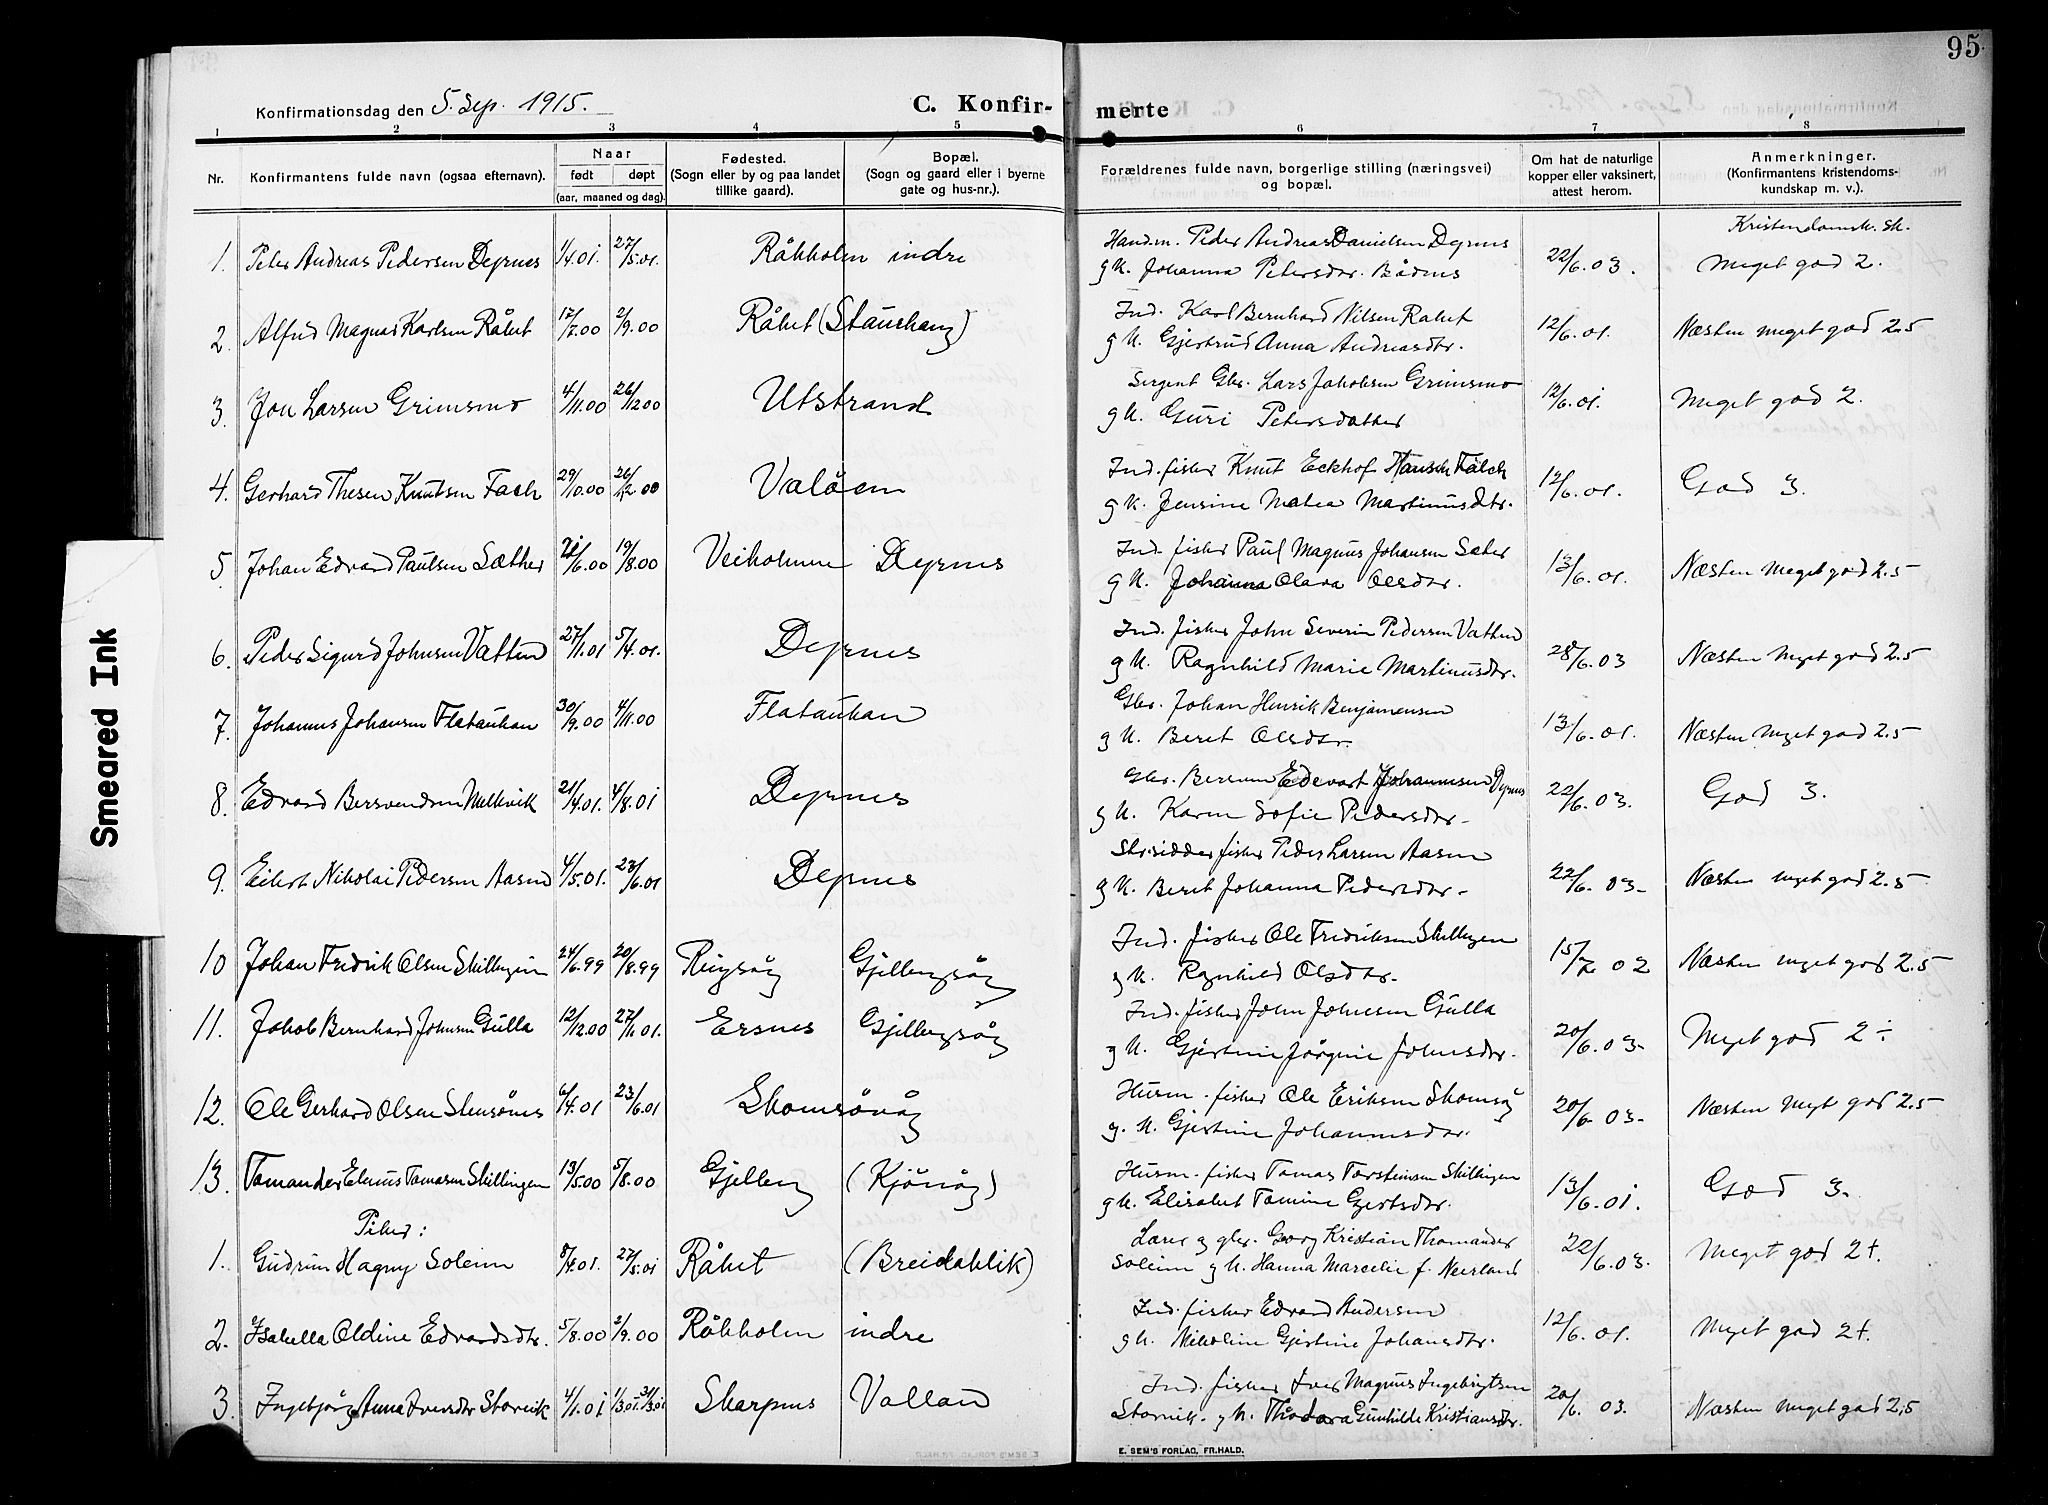 95
Konfirmationsdag den 5. Sep. 1915.
C. Konfir-
merte
1 2 3 4 5 6 7 8
Nr.
Konfirmantens fulde navn (ogsaa efternavn).
Naar
født
døpt
(aar, maaned og dag).
Fødested.
(Sogn eller by og paa landet
tillike gaard).
Bopæl.
(Sogn og gaard eller i byerne
gate og hus-nr.).
Forældrenes fulde navn, borgerlige stilling (næringsvei)
og bopæl.
Om hat de naturlige
kopper eller vaksinert,
attest herom.
Anmerkninger.
(Konfirmantens kristendoms-
kundskap m. v.).
Kristendomsk. sk.
1. Peter Andreas Pedersen Dyrnes 1/4.01. 27/5.01. Råkholm indre
Handm. Peder Andreas Danielsen Dyrnes
g h. Johanna Petersdr. Bådnes 22/6.03. Meget god 2.
2. Alfred Magnus Karlsen Råket 17/7.00 2/9.00 Råket (Staurhaug)
Ind. Karl Bernhard Nilsen Råket
g h. Gjertrud Anna Andreasdtr. 12/6.01. Næsten meget god 2.5
3. Jon Larsen Grimsmo 4/11.00 26/12 00 Utstrand
Sergent Gbr. Lars Jakobsen Grimsmo
g h. Guri Petersdatter 12/6.01. Meget god 2.
4. Gerhard Thesen Knutsen Falch 29/10.00 26/12 00 Valöen
Ind. fisker Knut Eckhof Hansen Falch
g h. Jensine Matea Martinusdtr. 12/6.01. God 3.
5 Johan Edvard Paulsen Sæther 21/6.00 19/8.00 Veiholmen Dyrnes
Ind. fisker Paul Magnus Johansen Sæter
g h. Johanna Olava Olsdtr. 13/6.01. Næsten meget god 2.5
6. Peder Sigurd Johnsen Vatten 27/1.01 5/4.01. Dyrnes
Ind. fisker John Severin Pedersen Vatten
g h. Ragnhild Marie Martinusdtr. 28/6.03 Næsten meget god 2.5
7. Johannes Johansen Flataukan 30/9.00 4/11.00 Flataukan
Gbr. Johan Henrik Benjaminsen
g h. Beret Olsdtr. 13/6.01. Næsten meget god 2.5
8. Edvard Bersvendsen Melkvik 21/4.01. 4/8.01 Dyrnes
Gbr. Edevart Johannesen Dyrnes
g h. Karen Sofie Pedersdtr. 22/6.03. God 3.
9. Eilert Nikolai Pedersen Aasen 4/5.01. 23/6.01 Dyrnes
Skredder fisker Peder Larsen Aasen
g h. Beret Johanna Pedersdtr. 22/6.03. Næsten meget god 2.5
10 Johan Fredrik Olsen Skillingen 24/6.99 20/8.99 Ringsöy Gjellingsöy
Ind. fisker Ole Fredriksen Skillingen
g h. Ragnhild Olsdtr. 15/7 02 Næsten meget god 2.5
11. Jakob Bernhard Johnsen Gulla 12/12 00 27/1 01. Ersnes Gjellingsöy
Ind. fisker John Johnsen Gulla
g h. Gjertine Jörgine Johnsdtr. 20/6.03. Meget god 2÷
12. Ole Gerhard Olsen Stensönes 6/4.01 23/6.01 Skomsövåg
Husm. fisker Ole Eriksen Skomsöy
g. h. Gjertine Johannesdtr. 20/6.03. Næsten meget god 2.5
13. Tomander Elenius Tomasen Skillingen 13/5.00 5/8.00 Gjelleng (Kjönöy)
Husm. fisker Tomas Torsteinsen Skillingen
g h. Elisabet Tomine Gjertsdtr. 13/6.01. God 3.
Piker:
1. Gudrun Hagny Soleim 8/4.01. 27/5.01 Råket (Breidablik)
Lærer og gbr. Georg Kristian Thomander
Soleim g h. Hanna Marcelie f. Neerland 22/6.03. Meget god 2+.
2. Isabella Oldine Edvardsdtr. 5/8.00 2/9.00 Råkholm indre
Ind. fisker Edvard Andersen
g h. Nikoline Gjertine Johansdtr. 12/6.01. Meget god 2+.
3. Ingebjörg Anna Iversdtr Storvik 4/1.01 1/3.01. 31/3.01 Skarpnes Valland
Ind. fisker Iver Magnus Ingebrigtsen
Storvik. g h. Thodora Gunhilde Kristiansdtr. 20/6. 03. Næsten meget god 2,5
E. SEM'S FORLAG, FR.HALD.
Smeared Ink